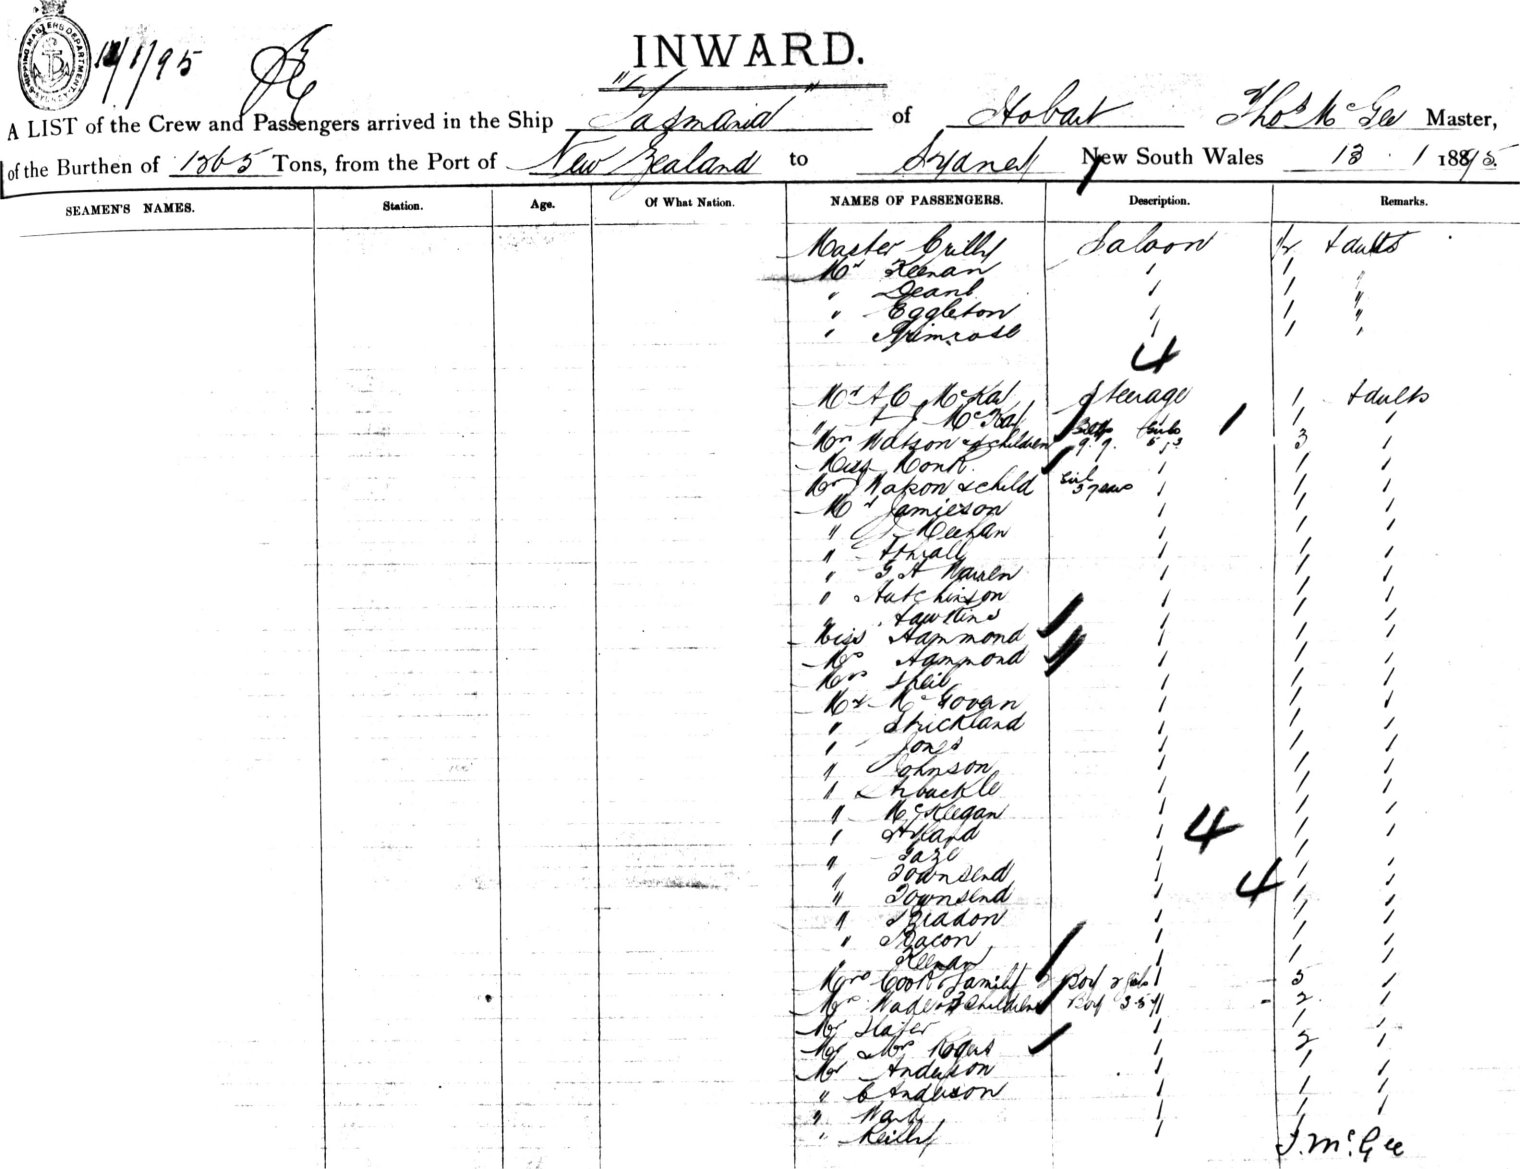 SHIPPING MASTERS DEPARTMENT
12/1/95
INWARD.
A LIST of the Crew and Passengers arrived in the Ship "Tasmania" of Hobart Thos McGee Master,
of the Burthen of 1265 Tons, from the Port of New Zealand to Sydney New South Wales 13 . 1 1895.
SEAMEN'S NAMES. Station. Age. Of What Nation. NAMES OF PASSENGERS. Description. Remarks.
Master Crilly Saloon 1/2 Adults
Mr Keenan " 1 "
" Deane " 1 "
" Eggleton " 1 "
" Primrose " 1 "
4
Mr A C McKay Steerage 1 Adults
" McKay 1 "
Mrs Watson & children Boys Girls 9. 7. 5, 3 3 "
Miss Monk " 1 "
Mrs Wapon & child Girl 3 years " 1 "
Mr Jamieson " 1 "
" Meehan " 1 "
" " 1 "
" G A Warren " 1 "
" Hutchinson " 1 "
" Hawkins " 1 "
Miss Hammond " 1 "
Mrs Hammond " 1 "
Mrs Sheil " 1 "
Mr McGovern " 1 "
" Strickland " 1 "
" Jones " 1 "
" Johnson " 1 "
" Arbuckle " 1 "
" McKeegan " 1 "
" Hyland 4 1 "
" Gaze " 1 "
" Townsend 4 1 "
" Townsend " 1 "
" Readon " 1 "
" Bacon " 1 "
" Keenan " 1 "
Mrs Cook & family Boy 2 Girls " 3 "
Mrs Wade & 3 children Boy 3.5.7 " 2 "
Mr Slater " 1 "
Mr & Mrs Rogers " 2 "
Mr Anderson " 1 "
" C Anderson " 1 "
" Ward " 1 "
" Reilly "
T. McGee